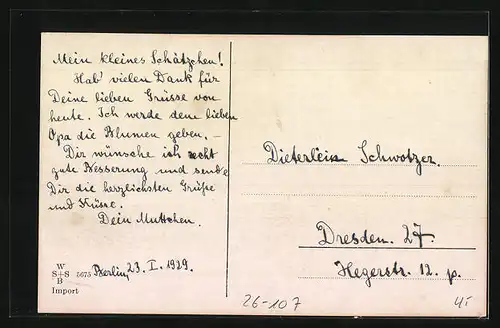 Mein kleines Schätzchen!
Hab' vielen Dank für
Deine lieben Grüsse von
heute. Ich werde dem lieben
Opa die Blumen geben. –
Dir wünsche ich recht
gute Besserung und sende
Dir die herzlichsten Grüße
und Küsse.
Dein Muttchen.
Berlin, 23. I. 1929.
W
S+S 5675
B
Import
Dieterlein
Dresden. 27.
Hegerstr. 12. p.
26-107